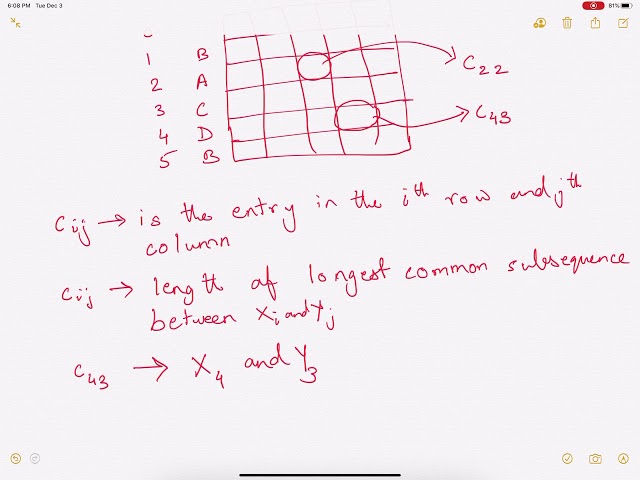 6:08 PM Tue Dec 3
81%
1 B
2 A
3 C
4 D
5 B
C22
C43
Cij → is the entry in the ith row and jth
column
Cij → length of longest common subsequence
between Xi and Yj
C43 → X4 and Y3